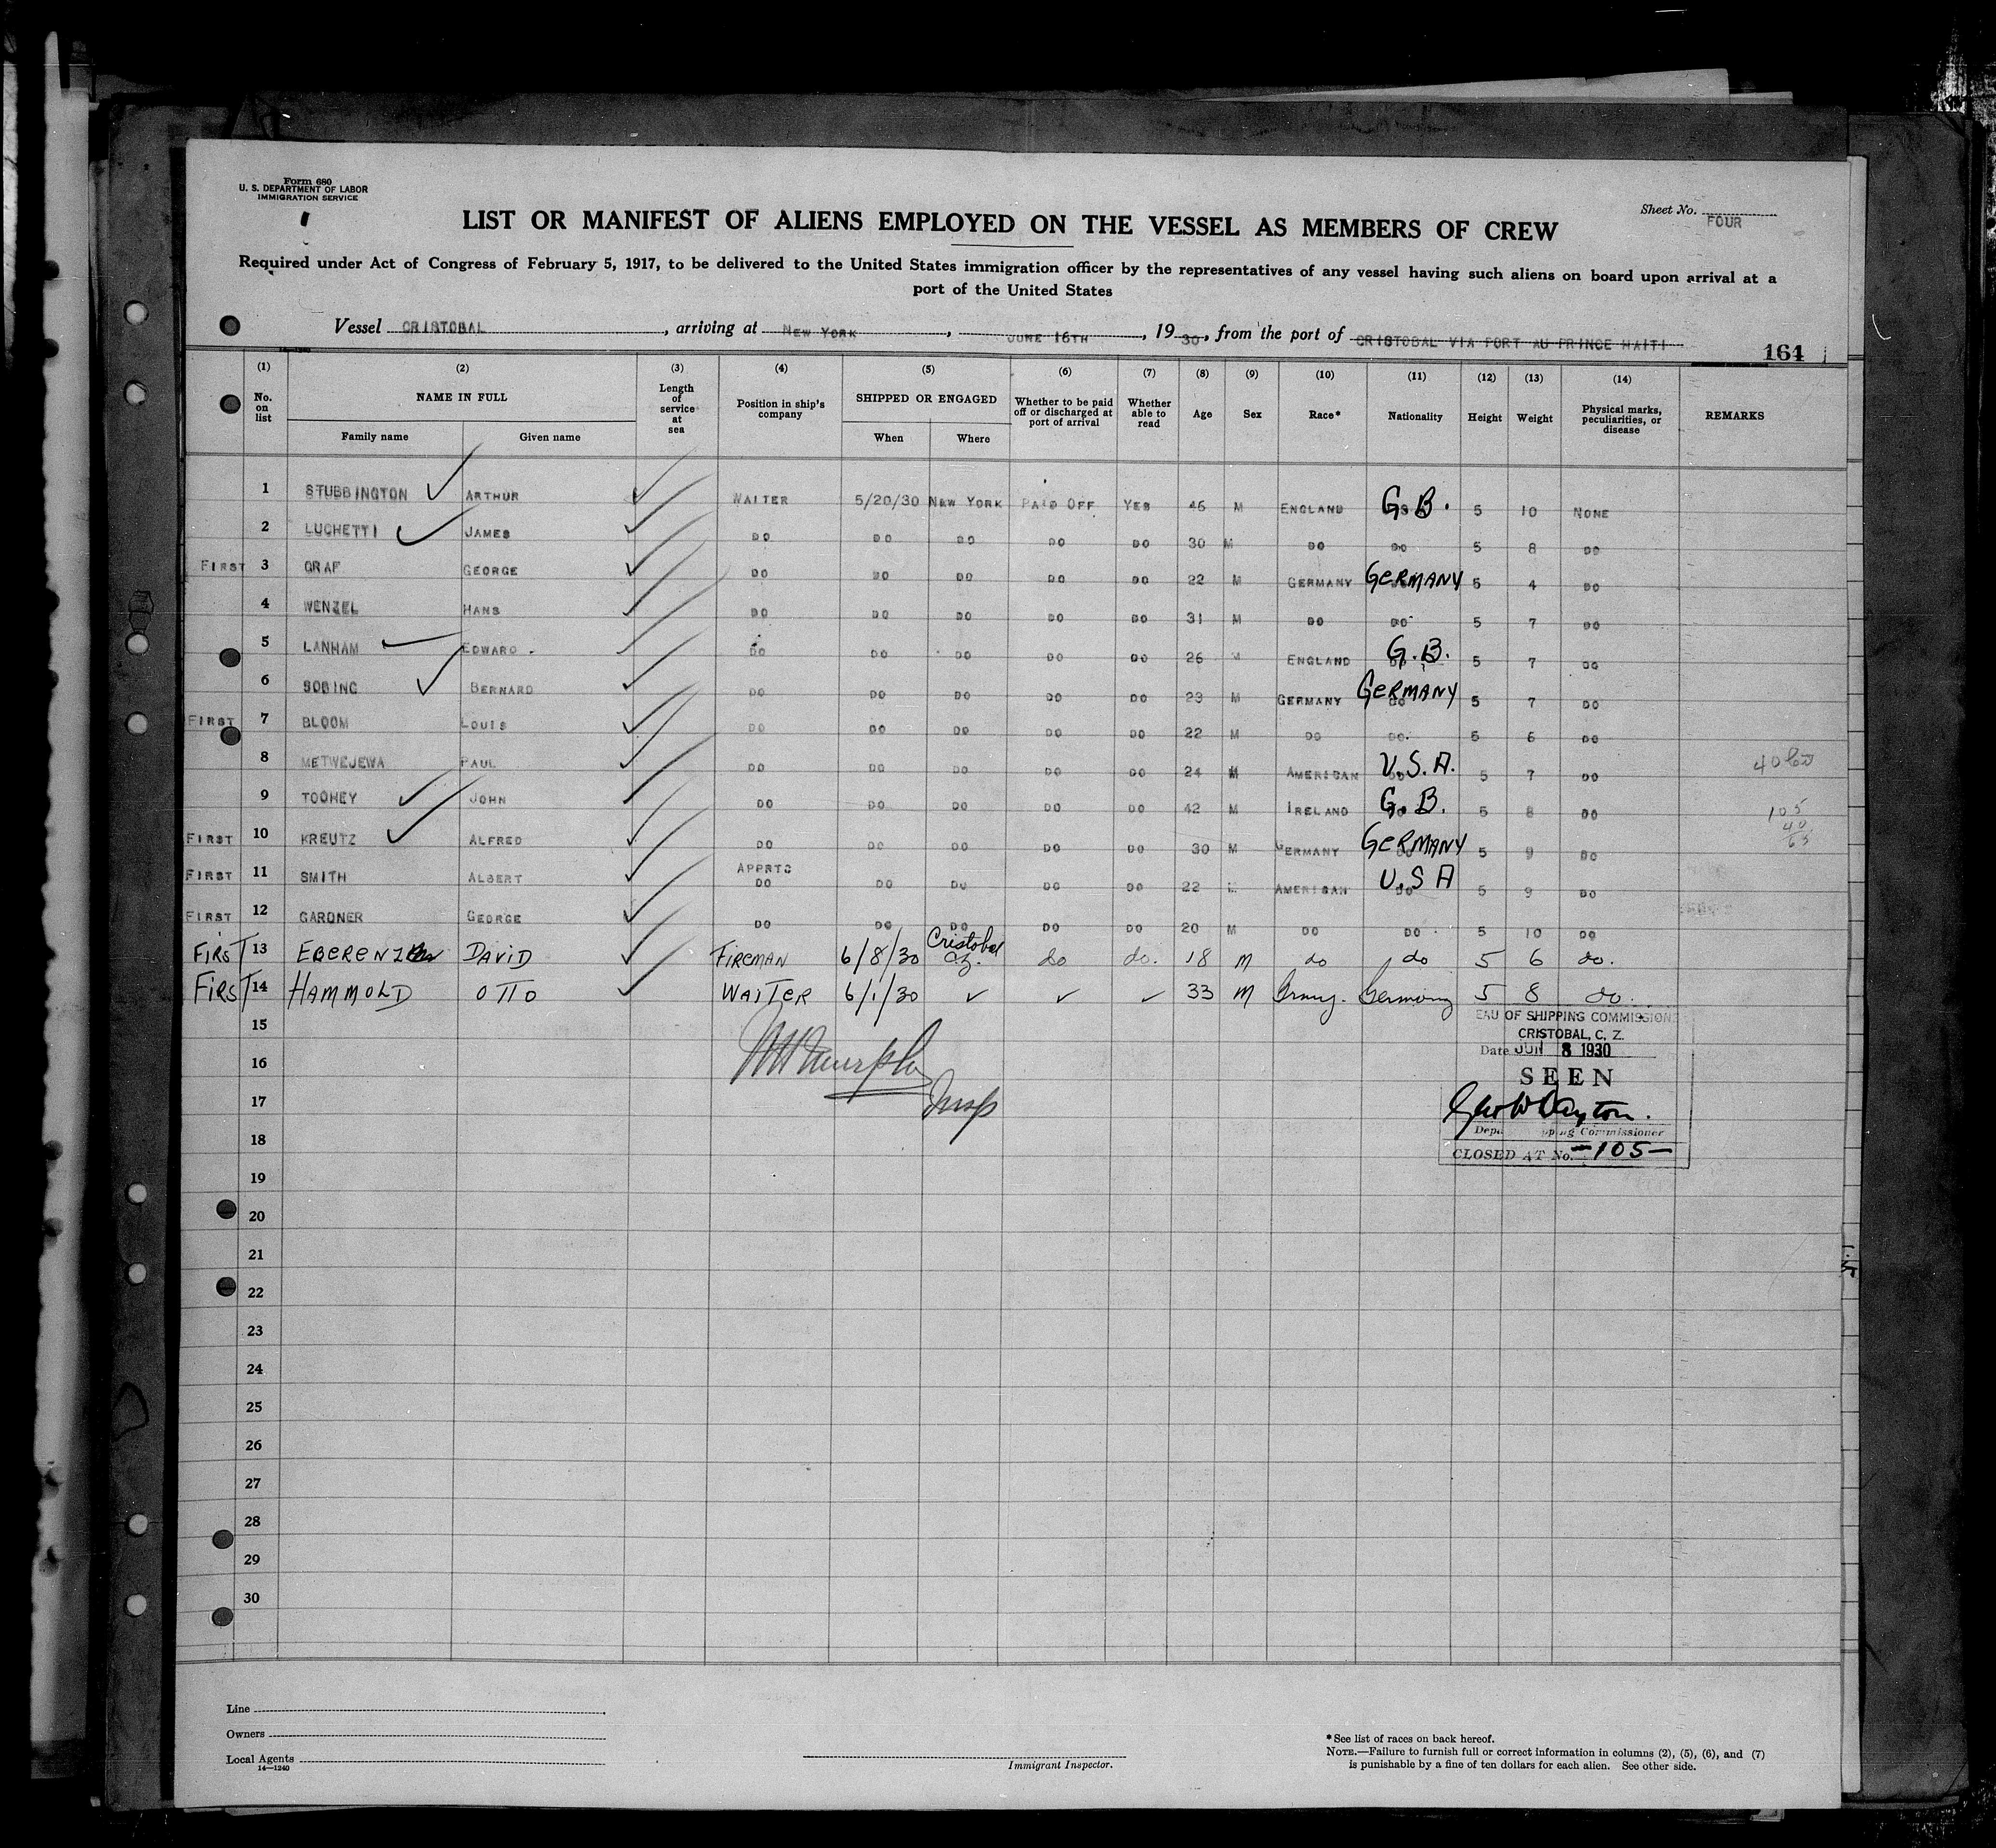 Form 680
U. S. DEPARTMENT OF LABOR
IMMIGRATION SERVICE
Sheet No. FOUR
LIST OR MANIFEST OF ALIENS EMPLOYED ON THE VESSEL AS MEMBERS OF CREW
Required under Act of Congress of February 5, 1917, to be delivered to the United States immigration officer by the representatives of any vessel having such aliens on board upon arrival at a
port of the United States
Vessel CRISTOBAL, arriving at NEW YORK, JUNE 16TH, 1930, from the port of CRISTOBAL VIA PORT AU PRINCE HAITI
164
(1) (2) (3) (4) (5) (6) (7) (8) (9) (10) (11) (12) (13) (14)
No. on list NAME IN FULL Length of service at sea Position in ship's company SHIPPED OR ENGAGED Whether to be paid off or discharged at port of arrival Whether able to read Age Sex Race* Nationality Height Weight Physical marks, peculiarities, or disease REMARKS
Family name Given name When Where
1 STUBBINGTON ARTHUR WAITER 5/20/30 NEW YORK PAID OFF YES 46 M ENGLAND G.B. 5 10 NONE
2 LUCHETTI JAMES DO DO DO DO DO 30 M DO DO 5 8 DO
FIRST 3 GRAF GEORGE DO DO DO DO DO 22 M GERMANY GERMANY 5 4 DO
4 WENZEL HANS DO DO DO DO DO 31 M DO DO 5 7 DO
5 LANHAM EDWARD DO DO DO DO DO 26 M ENGLAND G.B. 5 7 DO
6 SOBING BERNARD DO DO DO DO DO 23 M GERMANY GERMANY 5 7 DO
FIRST 7 BLOOM LOUIS DO DO DO DO DO 22 M DO DO. 5 6 DO
8 METWEJEWA PAUL DO DO DO DO DO 24 M AMERICAN U.S.A. 5 7 DO 40
9 TOOHEY JOHN DO DO DO DO DO 42 M IRELAND G.B. 5 8 DO 105
40
FIRST 10 KREUTZ ALFRED DO DO DO DO DO 30 M GERMANY GERMANY 5 9 DO 65
FIRST 11 SMITH ALBERT APPRTC DO DO DO DO DO 22 AMERICAN U.S A 5 9 DO
FIRST 12 GARDNER GEORGE DO DO DO DO DO 20 M DO DO 5 10 DO
FIRST 13 EBERENZ DAVID FIREMAN 6/8/30 Cristobal C.Z. do do. 18 M do do 5 6 do.
FIRST 14 HAMMOLD OTTO WAITER 6/1/30 33 M Germany 5 8 do.
15
16
17
18
19
20
21
22
23
24
25
26
27
28
29
30
Murphy
Insp
EAU OF SHIPPING COMMISSION
CRISTOBAL, C. Z.
Date JUN 8 1930
SEEN
Geo W Dayton.
Commissioner
CLOSED AT No. -105-
Line
Owners
Local Agents
14—1240
Immigrant Inspector.
*See list of races on back hereof.
NOTE.—Failure to furnish full or correct information in columns (2), (5), (6), and (7)
is punishable by a fine of ten dollars for each alien. See other side.